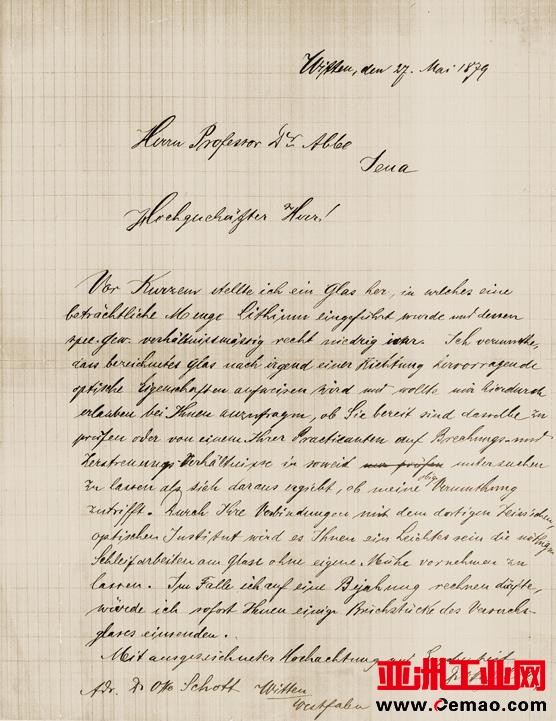 Witten, den 27. Mai 1879
Herrn Professor Dr. Abbe
Jena
Hochgeehrter Herr!
Vor Kurzem stellte ich ein Glas her, in welches eine
beträchtliche Menge Lithium eingeführt wurde und dessen
spec. Gew. verhältnissmässig recht niedrig war. Ich vermuthe,
dass bezeichnetes Glas nach irgend einer Richtung hervorragende
optische Eigenschaften aufweisen wird und wollte mir hierdurch
erlauben bei Ihnen anzufragen, ob Sie bereit sind dasselbe zu
prüfen oder von einem Ihrer Practicanten auf Brechungs- und
Zerstreuungs-Verhältnisse in soweit untersuchen
zu lassen als sich daraus ergiebt, ob meine obige Vermuthung
zutrifft. Durch Ihre Verbindungen mit dem dortigen Zeiss'schen
optischen Institut wird es Ihnen ein Leichtes sein die nöthigen
Schleifarbeiten am Glase ohne eigene Mühe vornehmen zu
lassen. Im Falle ich auf eine Bejahung rechnen dürfte,
würde ich sofort Ihnen einige Bruchstücke des Versuchs-
glases einsenden.
Mit ausgezeichneter Hochachtung
Adr. Dr. Otto Schott Witten
Westfalen
亚洲工业网
www.Cemao.com